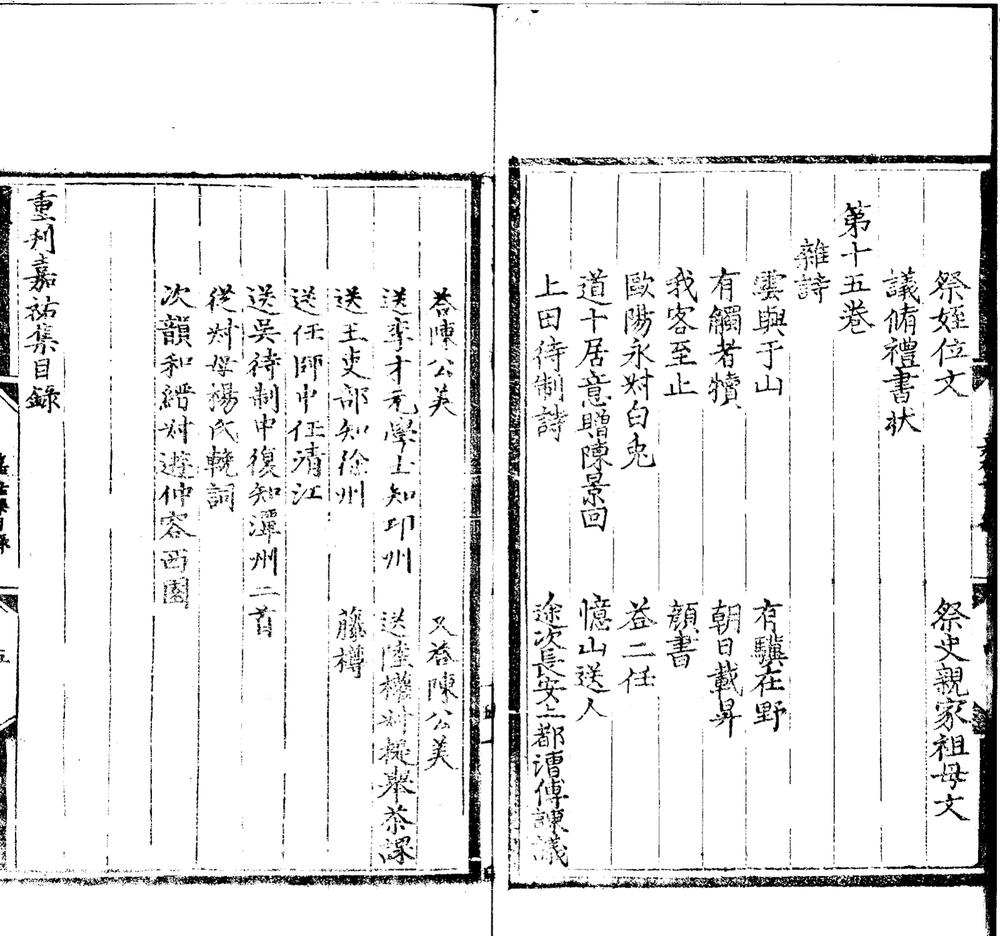 祭姪位文　祭史親家祖母文
議脩禮書狀
第十五卷
雜詩
雲興于山　有驥在野
有觸者犢　朝日載昇
我客至止　顏書
歐陽永叔白兎　荅二任
道卜居意贈陳景回　憶山送人
上田待制詩　途次長安上都漕傅諫議
荅陳公美　又荅陳公美
送李才元學士知邛州　送陸權叔提舉茶課
送王吏部知徐州　藤樽
送任師中任清江
送吳待制中復知潭州二首
從叔母楊氏輓詞
次韻和縉叔遊仲容西園
重刋嘉祐集目錄